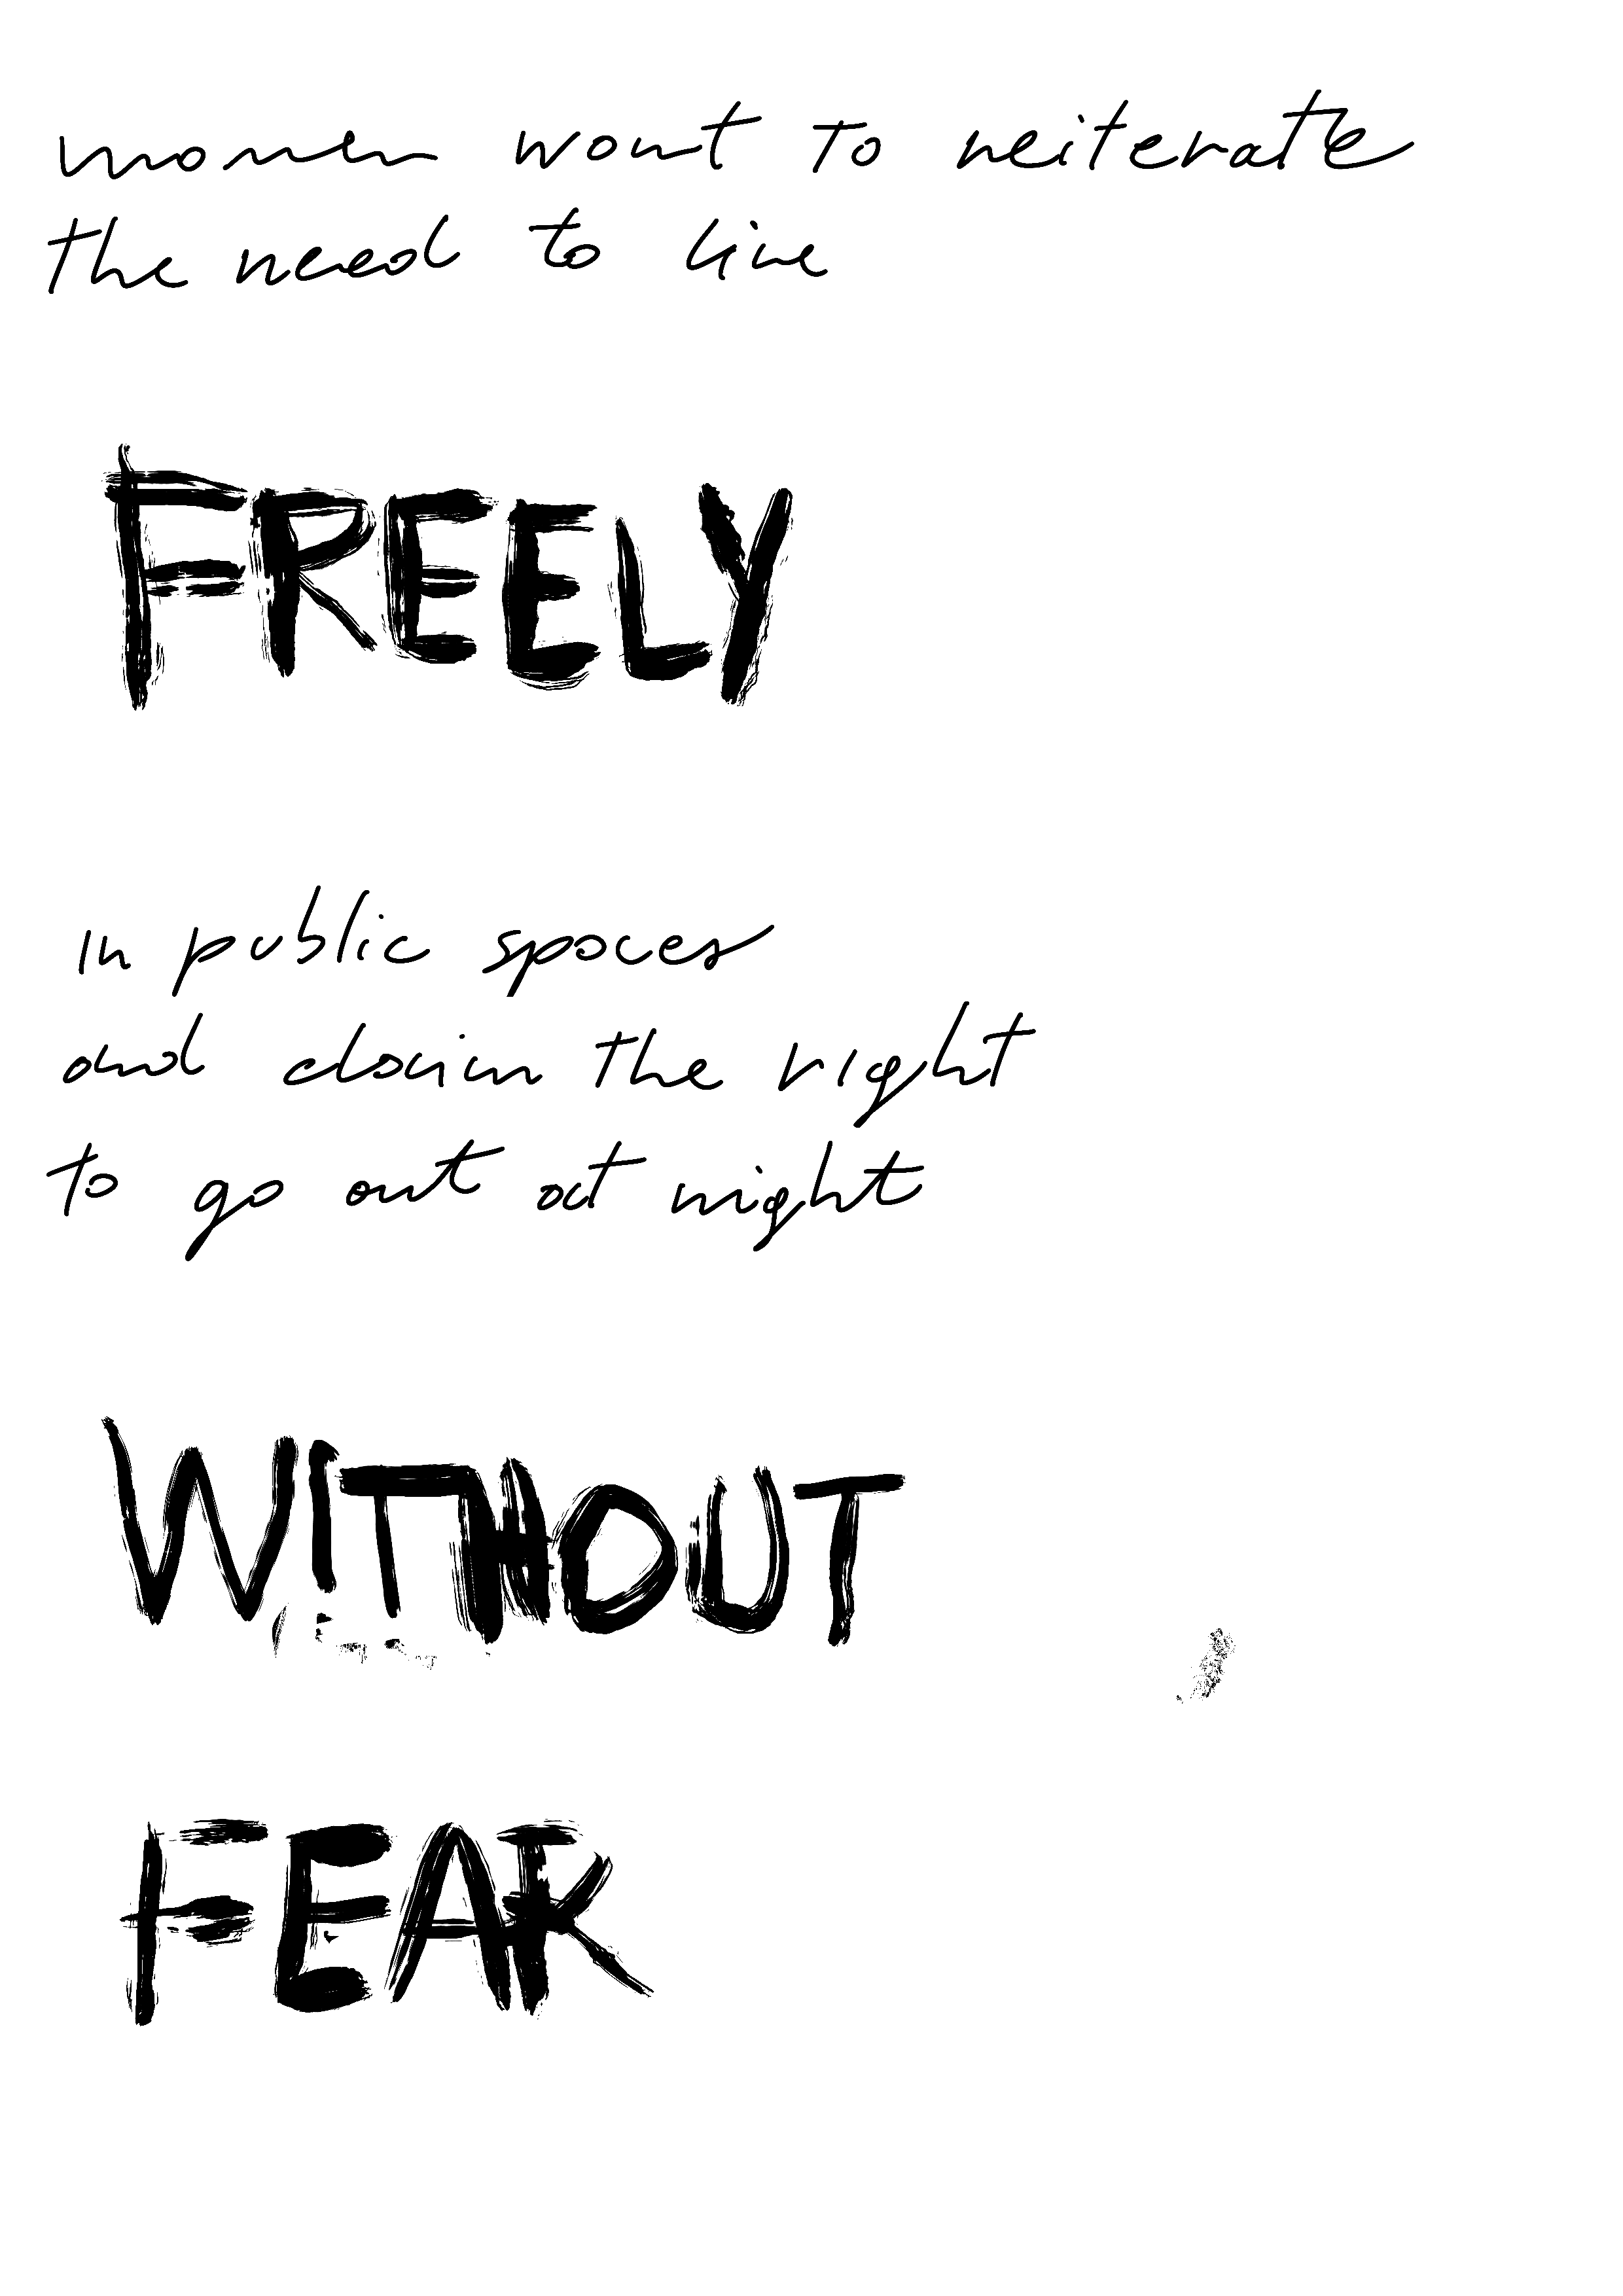 women want to reiterate
the need to live
FREELY
in public spaces
and claim the right
to go out at night
WITHOUT
FEAR